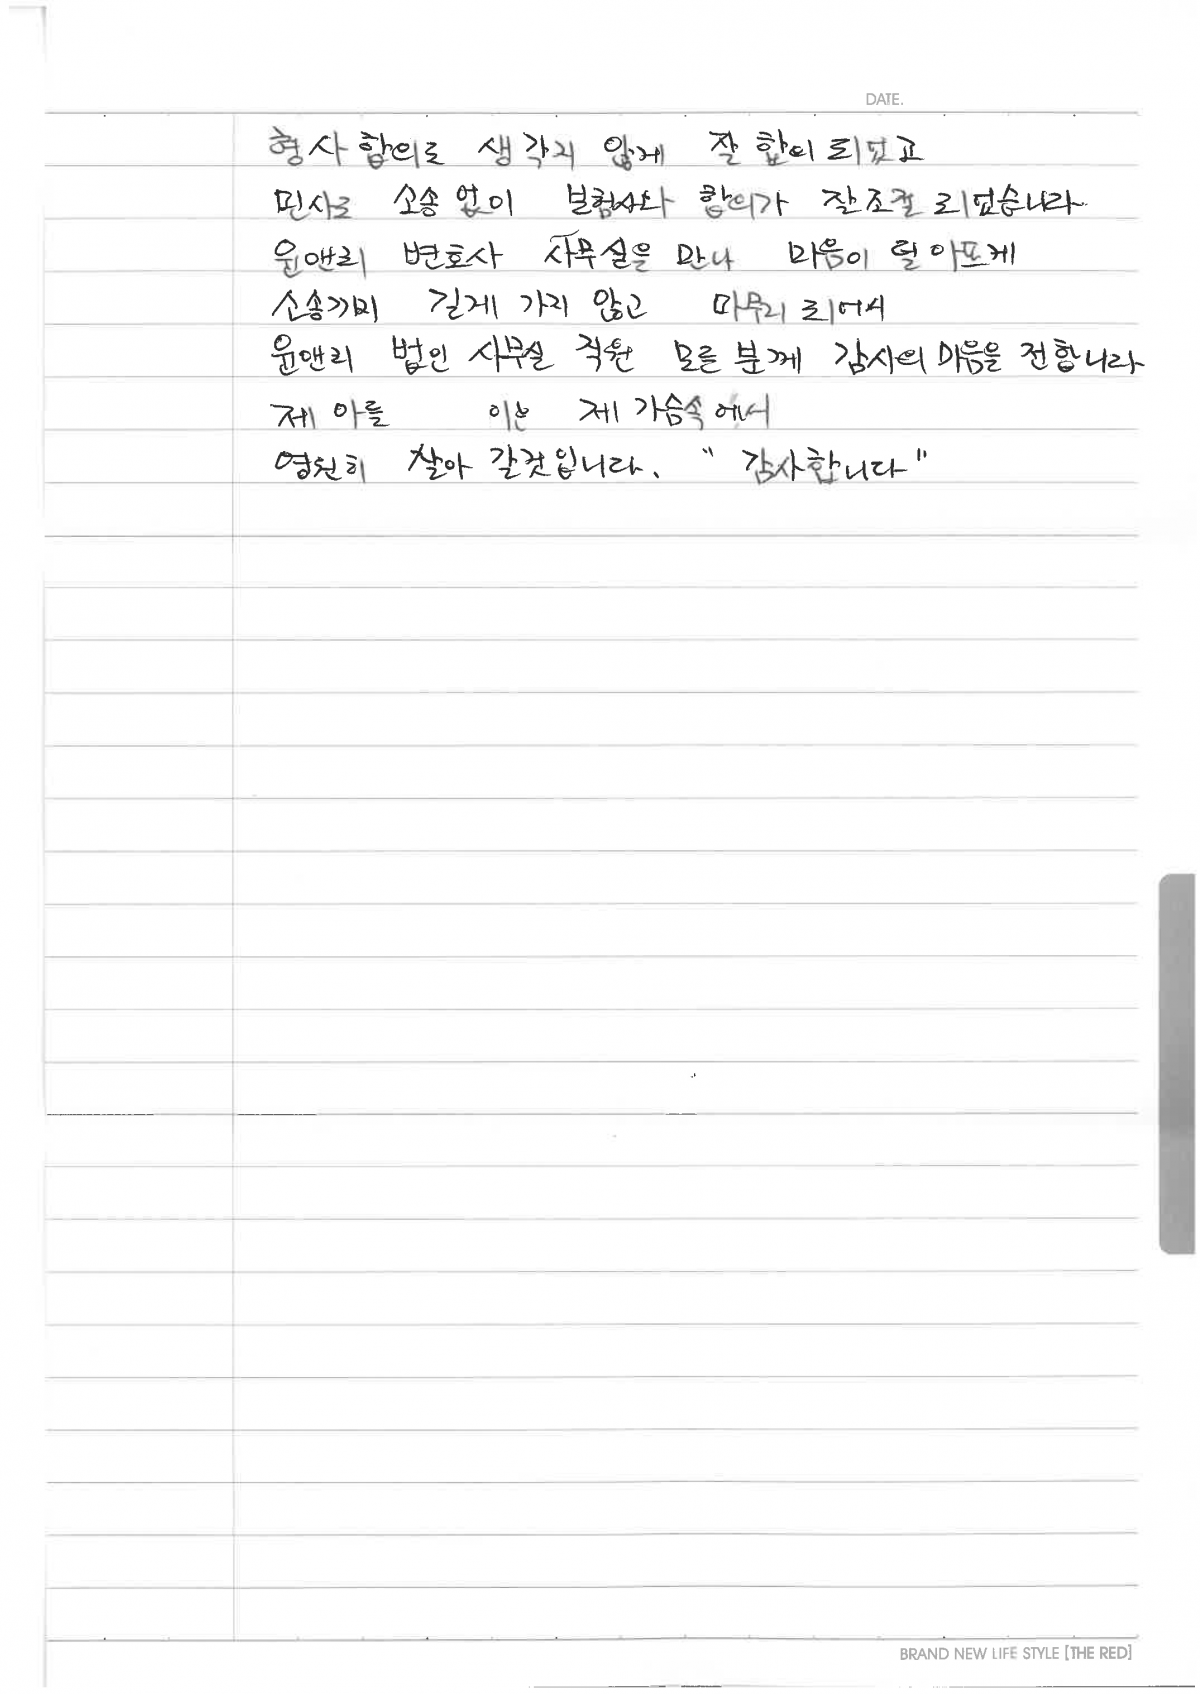 DATE.
형사 합의로 생각지 않게 잘 합의 되었고
민사로 소송 없이 보험사와 합의가 잘조절 되었습니다
윤앤리 변호사 사무실을 만나 마음이 덜 아프게
소송까비 길게 가지 않고 마무리 되어서
윤앤리 법인 사무실 직원 모든 분께 감사의 마음을 전합니다
제 아들 이는 제 가슴속에서
영원히 살아 갈것입니다. " 감사합니다"
BRAND NEW LIFE STYLE [THE RED]